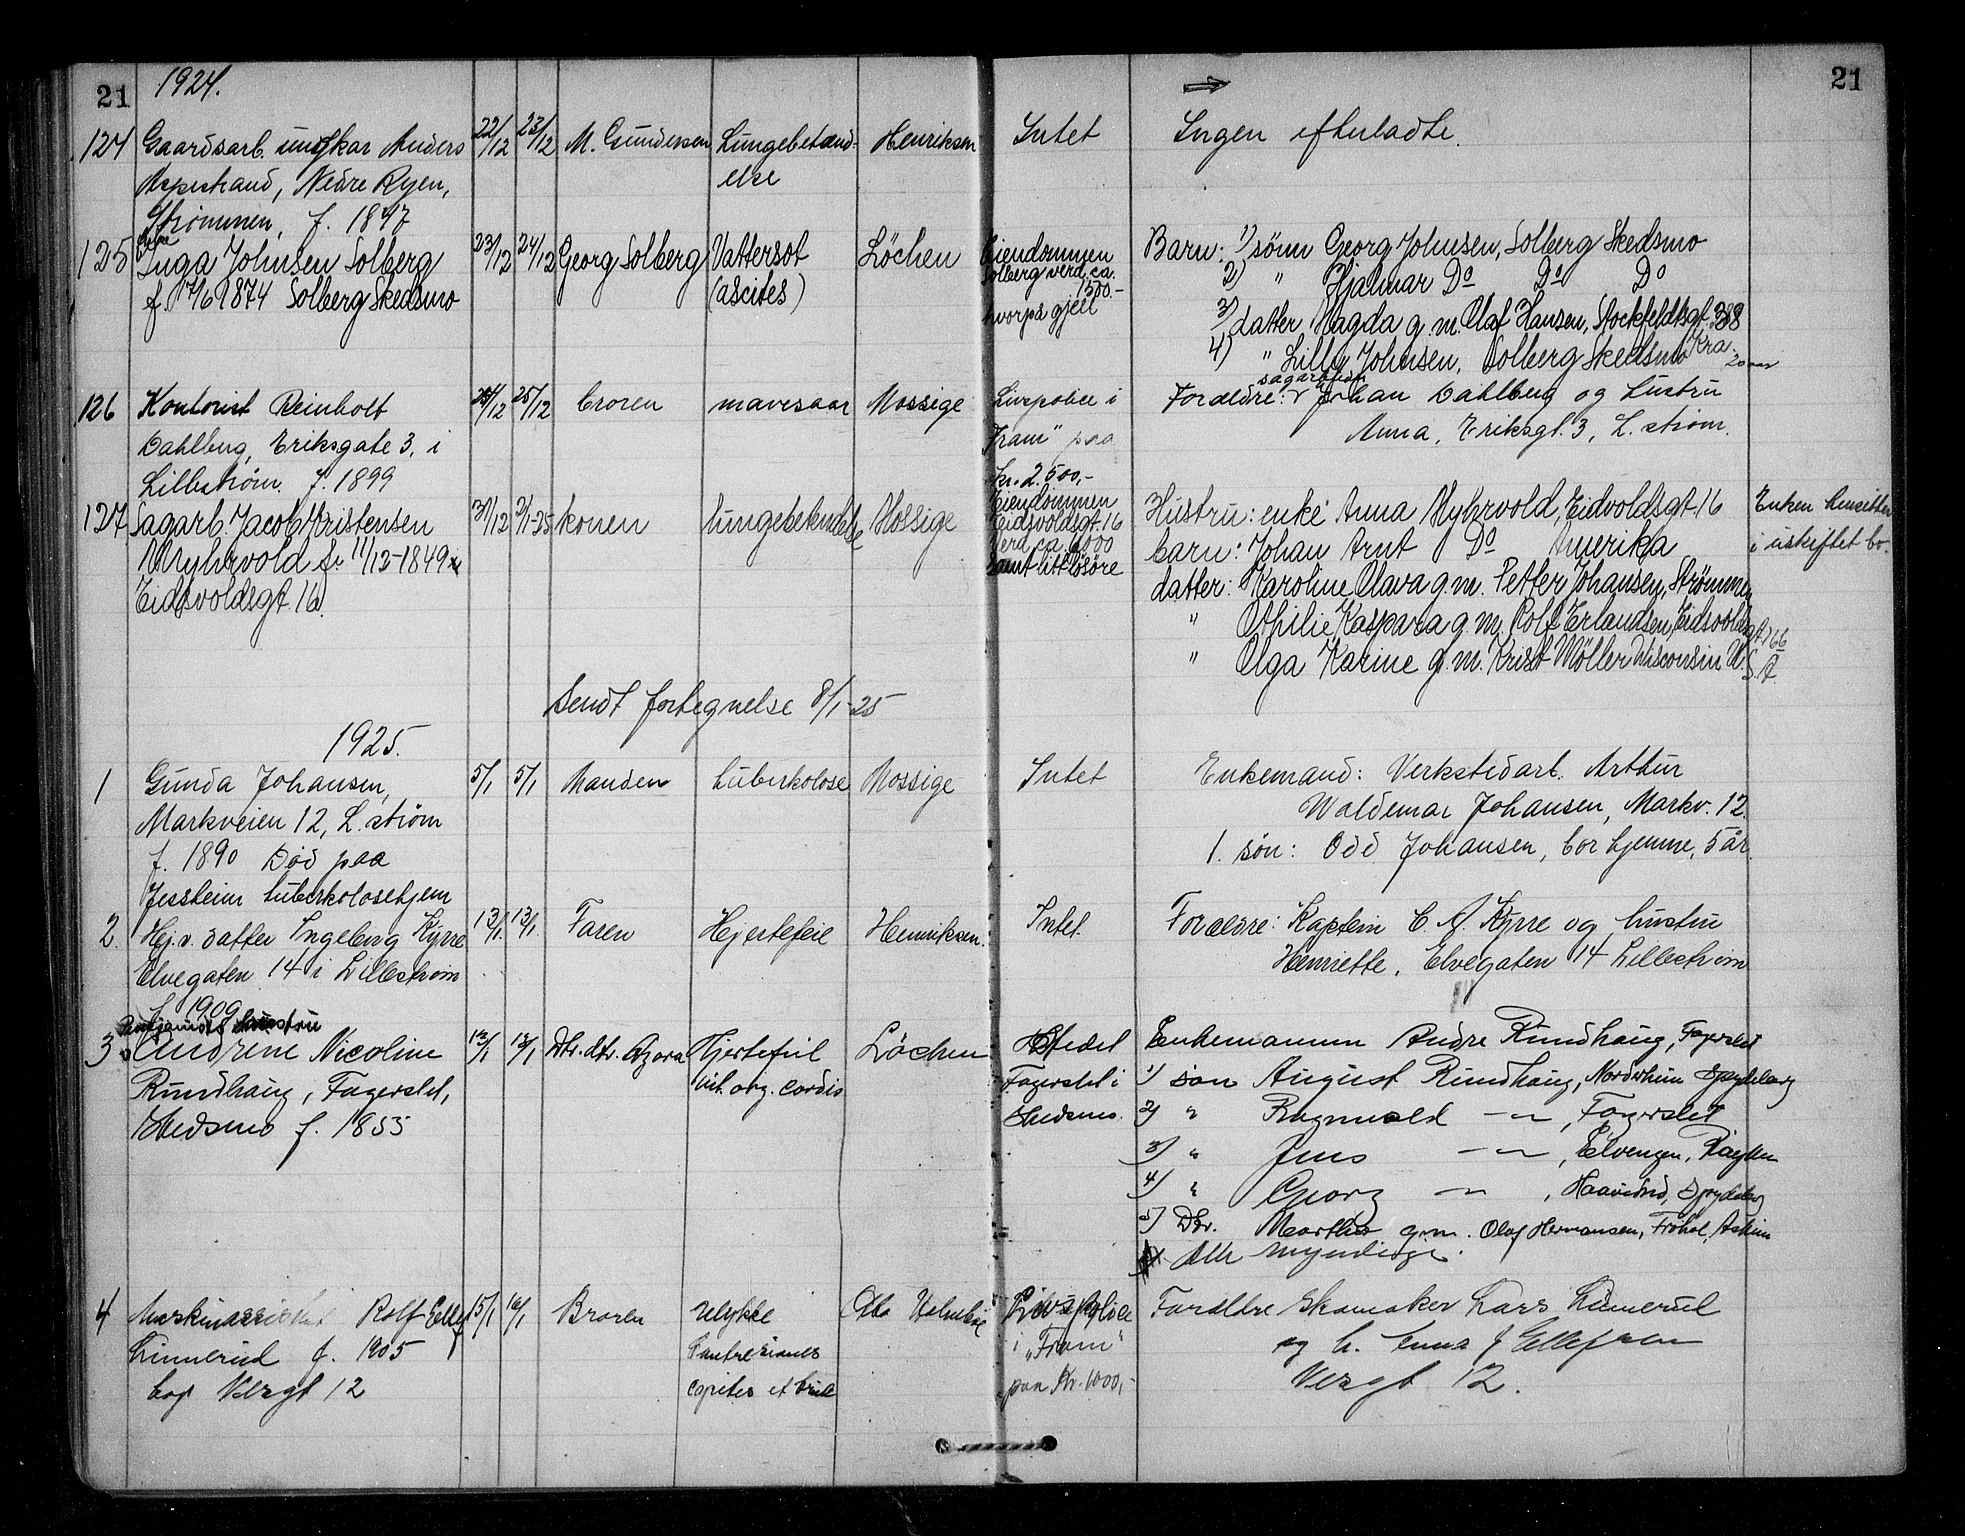 21
1924.
21
124 Gaardsarb. ungkar Anders 22/12 23/12 M. Gundersen Lungebetænd- Henriksen Intet Ingen efterladte.
Aspestrand, Nedre Ryen, else
Strømmen, f. 1897
125 Enke
Inga Johnsen Solberg 23/12 24/12 Georg Solberg Vattersot Löchen Eiendommen Barn: 1) sönn Georg Johnsen, Solberg Skedsmo
f. 17/6 1874 Solberg Skedsmo (ascites) Solberg verd. ca. 2) " Hjalmar Do Do Do
1500.-
hvorpå gjell 3) datter Magda g.m. Olaf Hansen, Stockfeldtsgt. 38
Kra.
4) " Lilly Johnsen, Solberg Skedsmo 20 aar
126 Kontorist Reinholt 24/12 25/12 broren mavesaar Mossige Livspolice i Forældre: Johan Dahlberg og hustru
Dahlberg, Eriksgate 3, i "Fram" paa Anna, Eriksgt. 3, L.strøm.
Lillestrøm. f. 1899 kr. 2.500,-
127 Sagarb. Jacob Kristensen 31/12 3/1-25 konen lungebetendelse Mossige Eiendommen Hustru: enke Anna Myhrvold, Eidvoldsgt. 16 Enken hensitter
Myhrvold f. 11/12-1849 Eidsvoldsgt. 16 barn: Johan Arnt Do Amerika i uskiftet bo.
Eidsvoldsgt. 16 verd ca. 6000 datter: Karoline Olava g.m. Petter Johansen, Strømmen
samt litt lösöre " Othilie Kaspara g.m. Rolf Erlandsen, Eidsvoldsgt. 16b
" Olga Karine g.m. Krist Møller Wisconsin U.S.A.
Sendt fortegnelse 8/1-25
1925.
1 Gunda Johansen, 5/1 5/1 Manden tuberkolose Mossige Intet Enkemand: Verkstedarb. Arthur
Markveien 12, L.strøm Waldemar Johansen, Markv. 12.
f. 1890 Død paa 1. søn: Odd Johansen, bor hjemme, 5 år.
Jessheim tuberkolosehjem
2. Hj.v. datter Ingeborg Kyrre 13/1. 13/1. Faren Hjertefeil Henriksen. Intet. Forældre: Kaptein C. A. Kyrre og hustru
Elvegaten 14 i Lillestrøm Henriette, Elvegaten 14 Lillestrøm
f. 1909
3 hustru
Andrene Nicoline 12/1 13/1 Dtr. dtr. Agora Hjertefeil Löchen Stedet Enkemannen Andre Rundhaug, Fagerslet
Rundhaug, Fagerslet, vit. org. cordis Fagerslet i 1) søn August Rundhaug, Norderheim Spydeberg
Skedsmo f. 1855 Skedsmo. 2) " Ragnvald — " —, Fagerslet
3) " Jens — " —, Elvengen, Røyken
4) " Georg — " —, Haavidrud, Spydeberg
5) Dtr. Marthe g.m. Olaf Hermansen, Frøhol, Askim
Alle myndige.
4 Maskinassistent Rolf Ellef 15/1 16/1 Broren ulykke Holmboe Livspolice Foreldre Skomaker Lars Linnerud
Linnerud f. 1905 i "Fram" og h. Emma f. Ellefsen
bop Vergt 12 capitis et paa Kr. 1000,- Vergt 12.